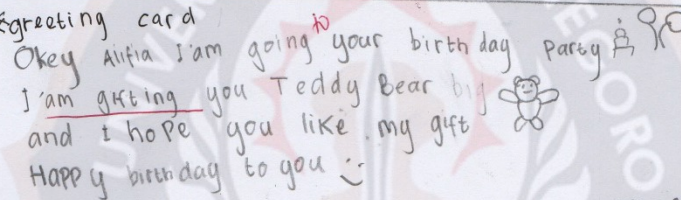 greeting card
Okey Alifia I'am going to your birthday party
I'am gifting you Teddy Bear big
and I hope you like my gift
Happy birthday to you